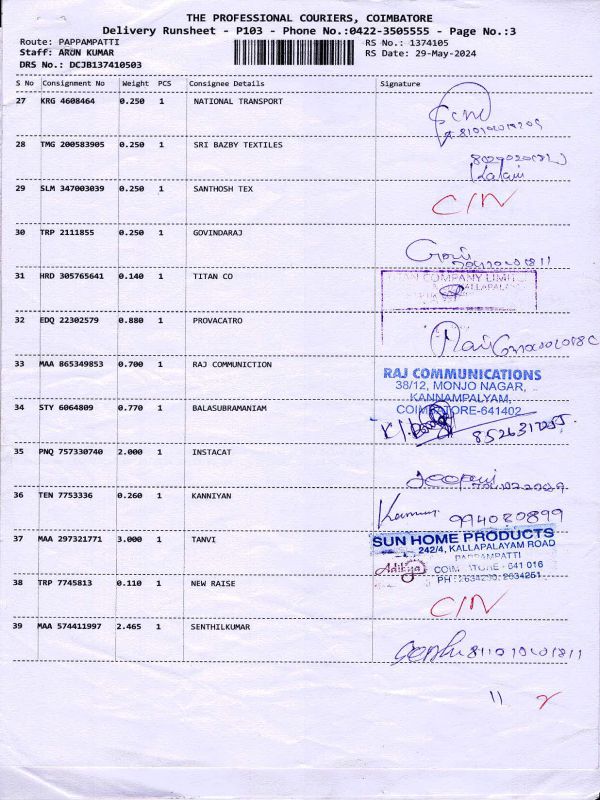 THE PROFESSIONAL COURIERS, COIMBATORE
Delivery Runsheet - P103 - Phone No.:0422-3505555 - Page No.:3
Route: PAPPAMPATTI RS No.: 1374105
Staff: ARUN KUMAR RS Date: 29-May-2024
DRS No.: DCJB137410503
S No Consignment No Weight PCS Consignee Details Signature
27 KRG 4608464 0.250 1 NATIONAL TRANSPORT
28 TMG 200583905 0.250 1 SRI BAZBY TEXTILES
Kalai
29 SLM 347003039 0.250 1 SANTHOSH TEX C/N
30 TRP 2111855 0.250 1 GOVINDARAJ
31 HRD 305765641 0.140 1 TITAN CO
COMPANY LIMI
32 EDQ 22302579 0.880 1 PROVACATRO
33 MAA 865349853 0.700 1 RAJ COMMUNICTION
RAJ COMMUNICATIONS
38/12, MONJO NAGAR,
KANNAMPALYAM,
COIMBATORE-641402
34 STY 6064809 0.770 1 BALASUBRAMANIAM
35 PNQ 757330740 2.000 1 INSTACAT
36 TEN 7753336 0.260 1 KANNIYAN
994080899
37 MAA 297321771 3.000 1 TANVI
SUN HOME PRODUCTS
242/4, KALLAPALAYAM ROAD
PAPPAMPATTI
641 016
Aditya
38 TRP 7745813 0.110 1 NEW RAISE C/N
39 MAA 574411997 2.465 1 SENTHILKUMAR
11 2